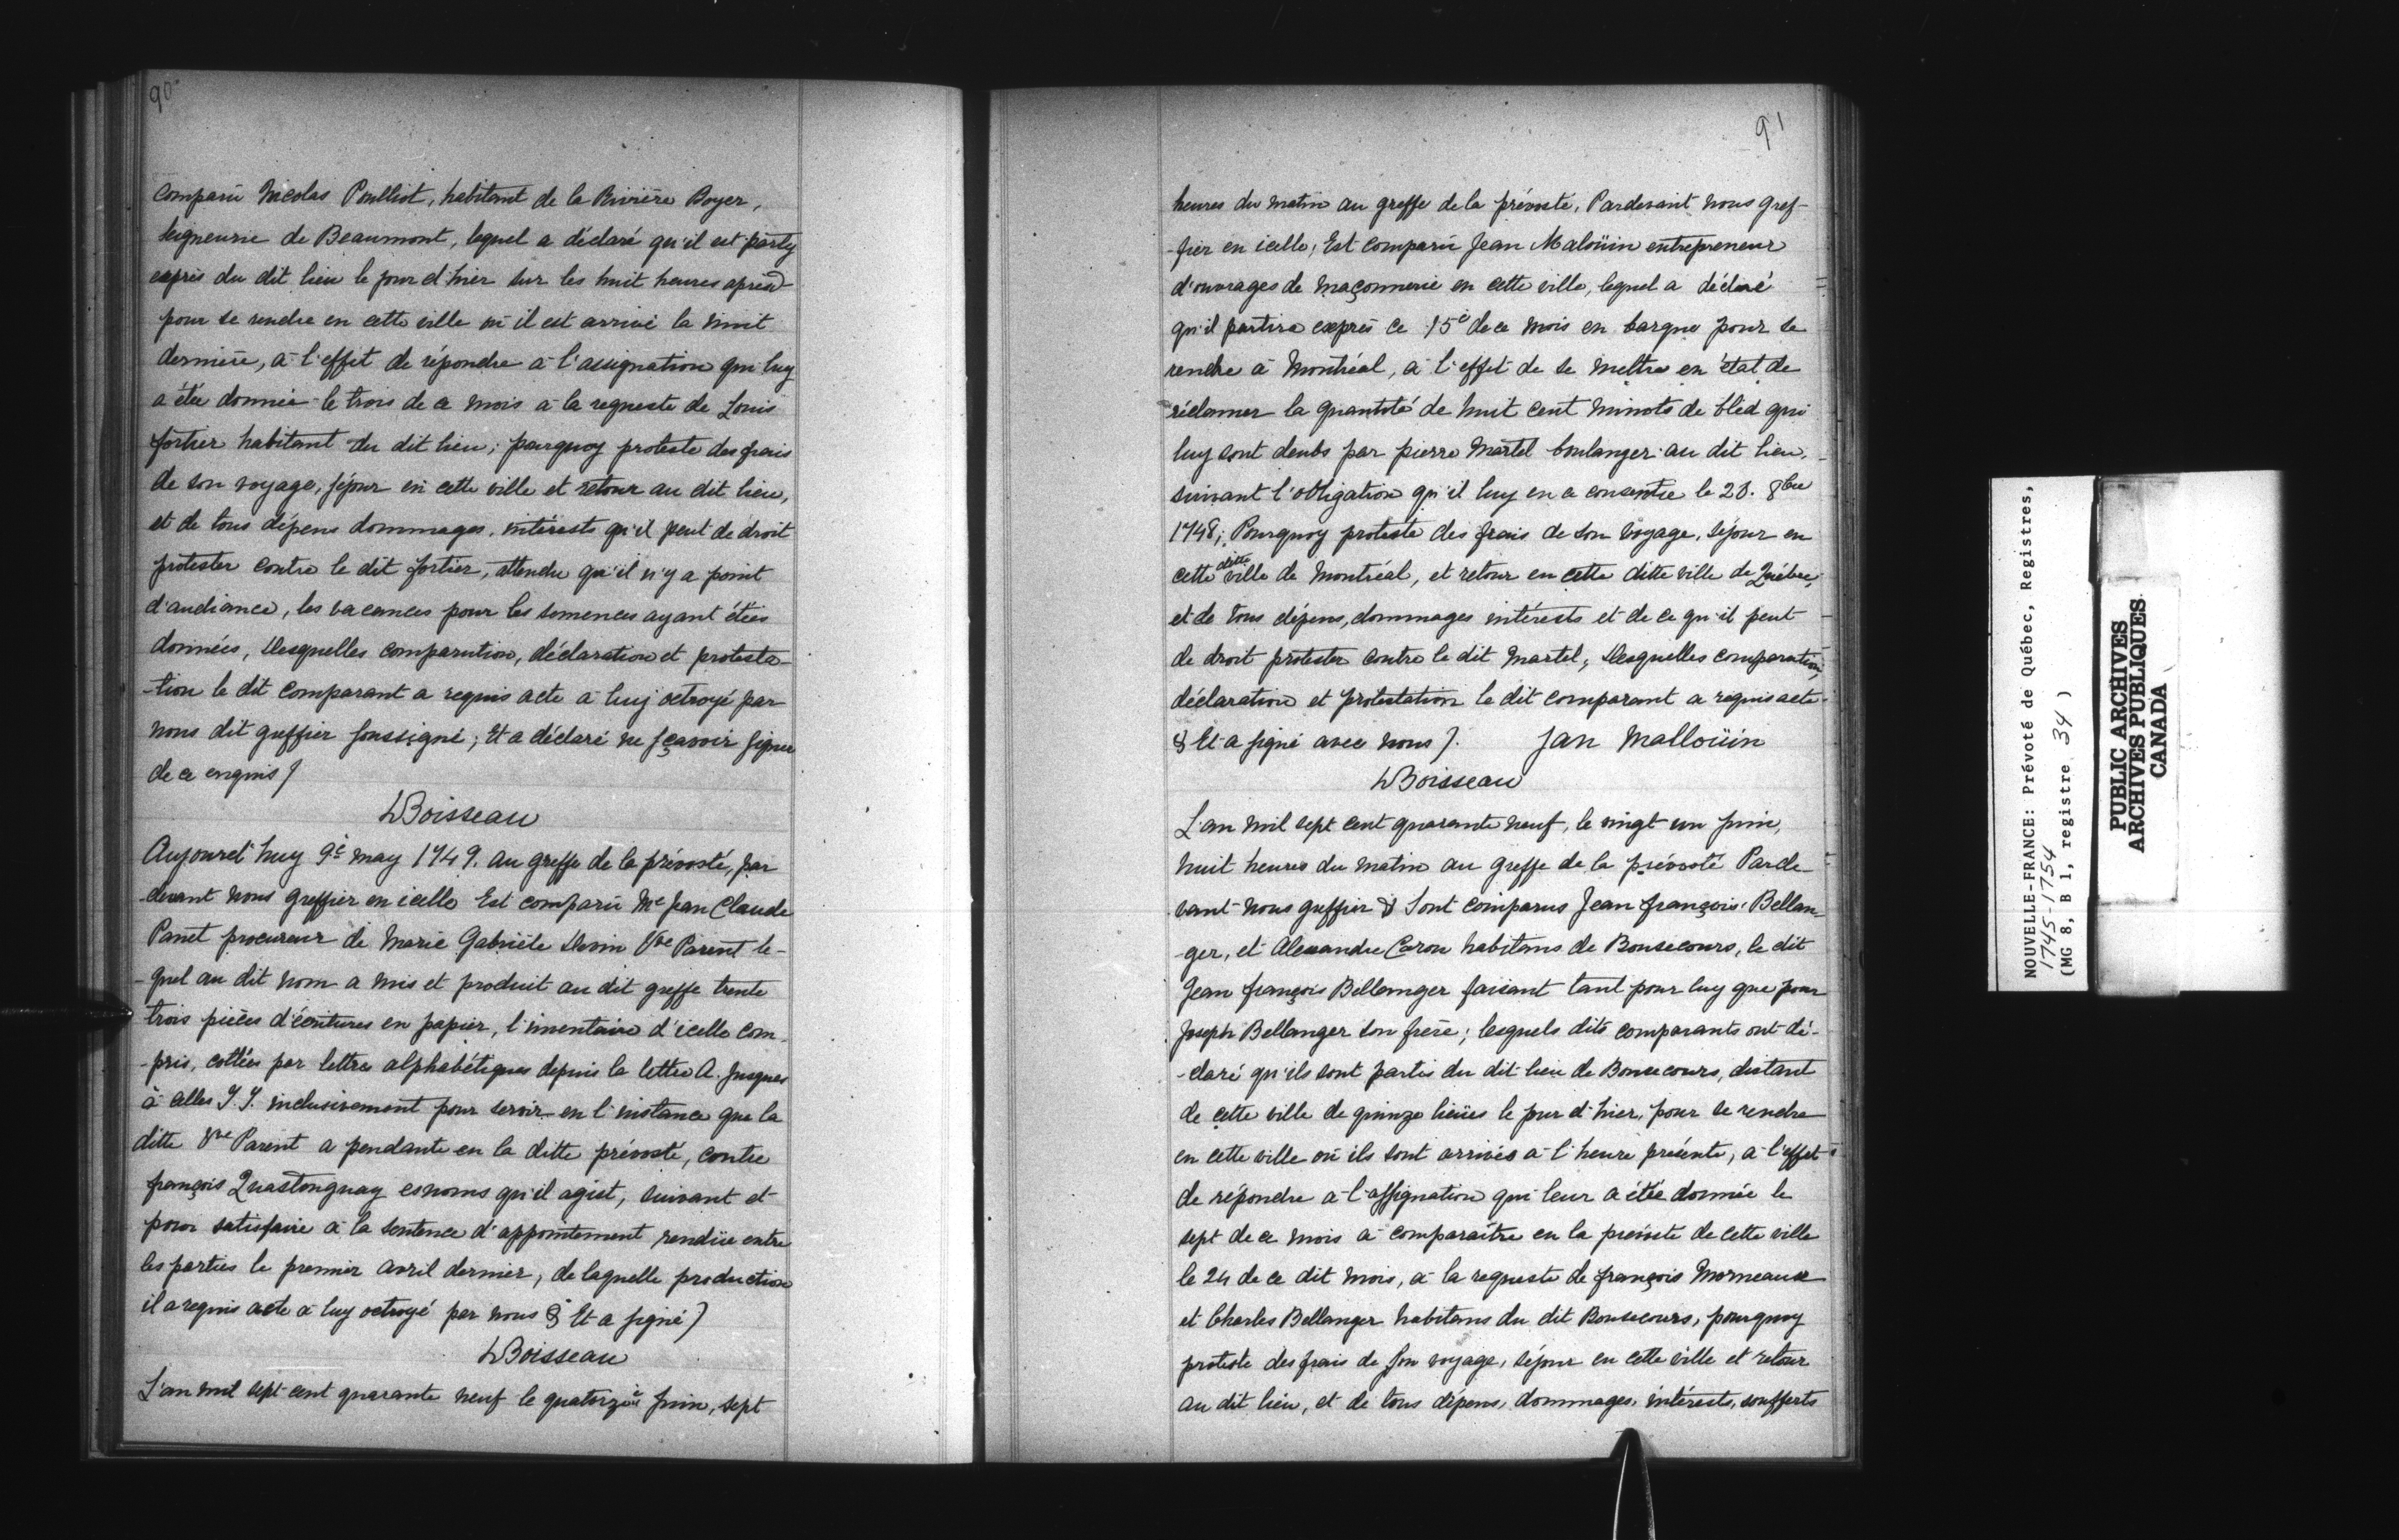 90
comparu Nicolas Poulliot, habitant de la Rivière Boyer,
seigneurie de Beaumont, lequel a déclaré qu'il est party
exprès du dit lieu le jour d'hier sur les huit heures
pour se rendre en cette ville où il est arrivé la nuit
dernière, à l'effet de répondre à l'assignation qui luy
a étée donnée le trois de ce mois à la requeste de Louis
fortier habitant du dit lieu; pourquoy proteste des frais
de son voyage, séjour en cette ville et retour au dit lieu,
et de tous dépens dommages, intérests qu'il peut de droit
protester contre le dit fortier, attendu qu'il n'y a point
d'audiance, les vacances pour les semences ayant étées
données, Desquelles comparution, déclaration et protesta-
-tion le dit comparant a requis acte à luy octroyé par
nous dit greffier soussigné; Et a déclaré ne sçavoir signer
de ce enquis /
Boisseau
Aujourd'huy 9è may 1749. au greffe de la prévosté, par
devant nous greffier en icelle Est comparu Me Jean Claude
Panet procureur de Marie Gabriele Voe Parent le-
-quel au dit nom a mis et produit au dit greffe trente
trois pièces d'écritures en papier, l'inventaire d'icelle com-
-pris, cottées par lettres alphabétiques depuis la lettre A. Jusques
à celles J.J. inclusivement pour servir en l'instance que la
ditte Vve Parent a pendante en la ditte prévosté, contre
françois Quastonguay esnoms qu'il agist, suivant et
pour satisfaire à la sentence d'appointement rendüe entre
les parties le premier avril dernier, de laquelle production
il a requis acte à luy octroyé par nous & Et a signé /
Boisseau
L'an mil sept cent quarante neuf le quatorzeè juin, sept
91
heures du matin au greffe de la prévosté, Pardevant nous gref-
-fier en icelle, Est comparu Jean Maloüin entrepreneur
d'ouvrages de maçonnerie en cette ville, lequel a déclaré
qu'il partira exprès ce 15è de ce mois en barque pour se
rendre à Montréal, à l'effet de se mettre en état de
réclamer la quantité de huit cent minots de bled qui
luy sont deubs par pierre Martel boulanger au dit lieu,
suivant l'obligation qu'il luy en a consentie le 8bre
1748; Pourquoy proteste des frais de son voyage, séjour en
cette ditte ville de Montréal, et retour en cette ditte ville de Québec,
et de tous dépens, dommages intérests et de ce qu'il peut
de droit protester contre le dit Martel, Desquelles comparution,
déclaration et protestation le dit comparant a requis acte
& Et a signé avec nous /. Jan Malloüin
Boisseau
L'an mil sept cent quarante neuf, le vingt un juin,
huit heures du matin au greffe de la prévosté Parde-
vant nous greffier & Sont comparus Jean françois Bellan-
-ger, et Alexandre Caron habitans de Bonsecours, le dit
Jean françois Bellanger faisant tant pour luy que pour
Joseph Bellanger son frère; lesquels dits comparants ont dé-
-claré qu'ils sont partis du dit lieu de Bonsecours, distant
de cette ville de quinze lieües le jour d'hier, pour se rendre
en cette ville où ils sont arrivés à l'heure présente, à l'effet
de répondre à l'assignation qui leur a étée donnée le
sept de ce mois à comparaître en la prévosté de cette ville
le 24 de ce dit mois, à la requeste de françois Morneaux
et Charles Bellanger habitans du dit Bonsecours, pourquoy
proteste des frais de son voyage, séjour en cette ville et retour
au dit lieu, et de tous dépens, dommages, intérests, soufferts
NOUVELLE-FRANCE: Prévoté de Québec, Registres,
1745-1754
(MG 8, B 1, registre 34 )
PUBLIC ARCHIVES
ARCHIVES PUBLIQUES
CANADA